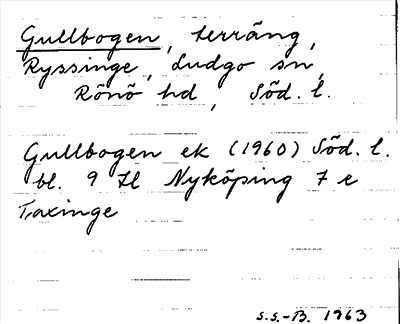 Gullbogen, terräng,
Ryssinge, Ludgo sn,
Rönö hd, Söd. l.
Gullbogen ek (1960) Söd. l.
bl. 9 H Nyköping 7 e
Taxinge
S.S.-B. 1963